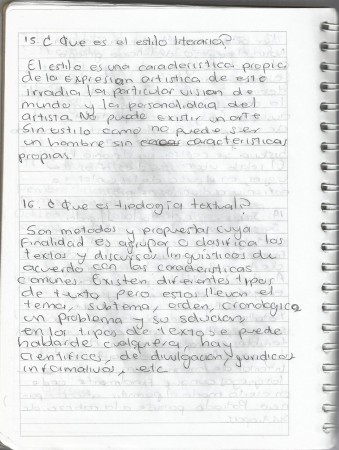 15 ¿ Que es el estilo literario?
El estilo es una caracteristica propia
de la expresion artistica de este
irradia la particular vision de
mundo y la personalidad del
artista No puede existir un arte
sin estilo como no puede ser
un hombre sin caracteristicas
propias.
16. ¿ Que es tipologia textual?
Son metodos y propuestas cuya
finalidad es agrupar o clasifica los
textos y discursos linguisticos de
acuerdo con las caracteristicas
comunes. Existen diferentes tipos
de texto pero estos llevan el
tema, subtema, orden, cronologico
un problema y su solucion
en los tipos de texto se puede
hablar de cualquiera, hay
cientificos, de divulgacion, juridicos
informativos, etc